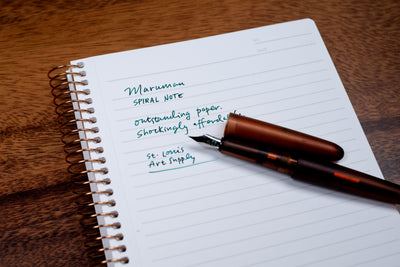 Maruman
SPIRAL NOTE
outstanding paper.
shockingly
St. Louis
Art Supply